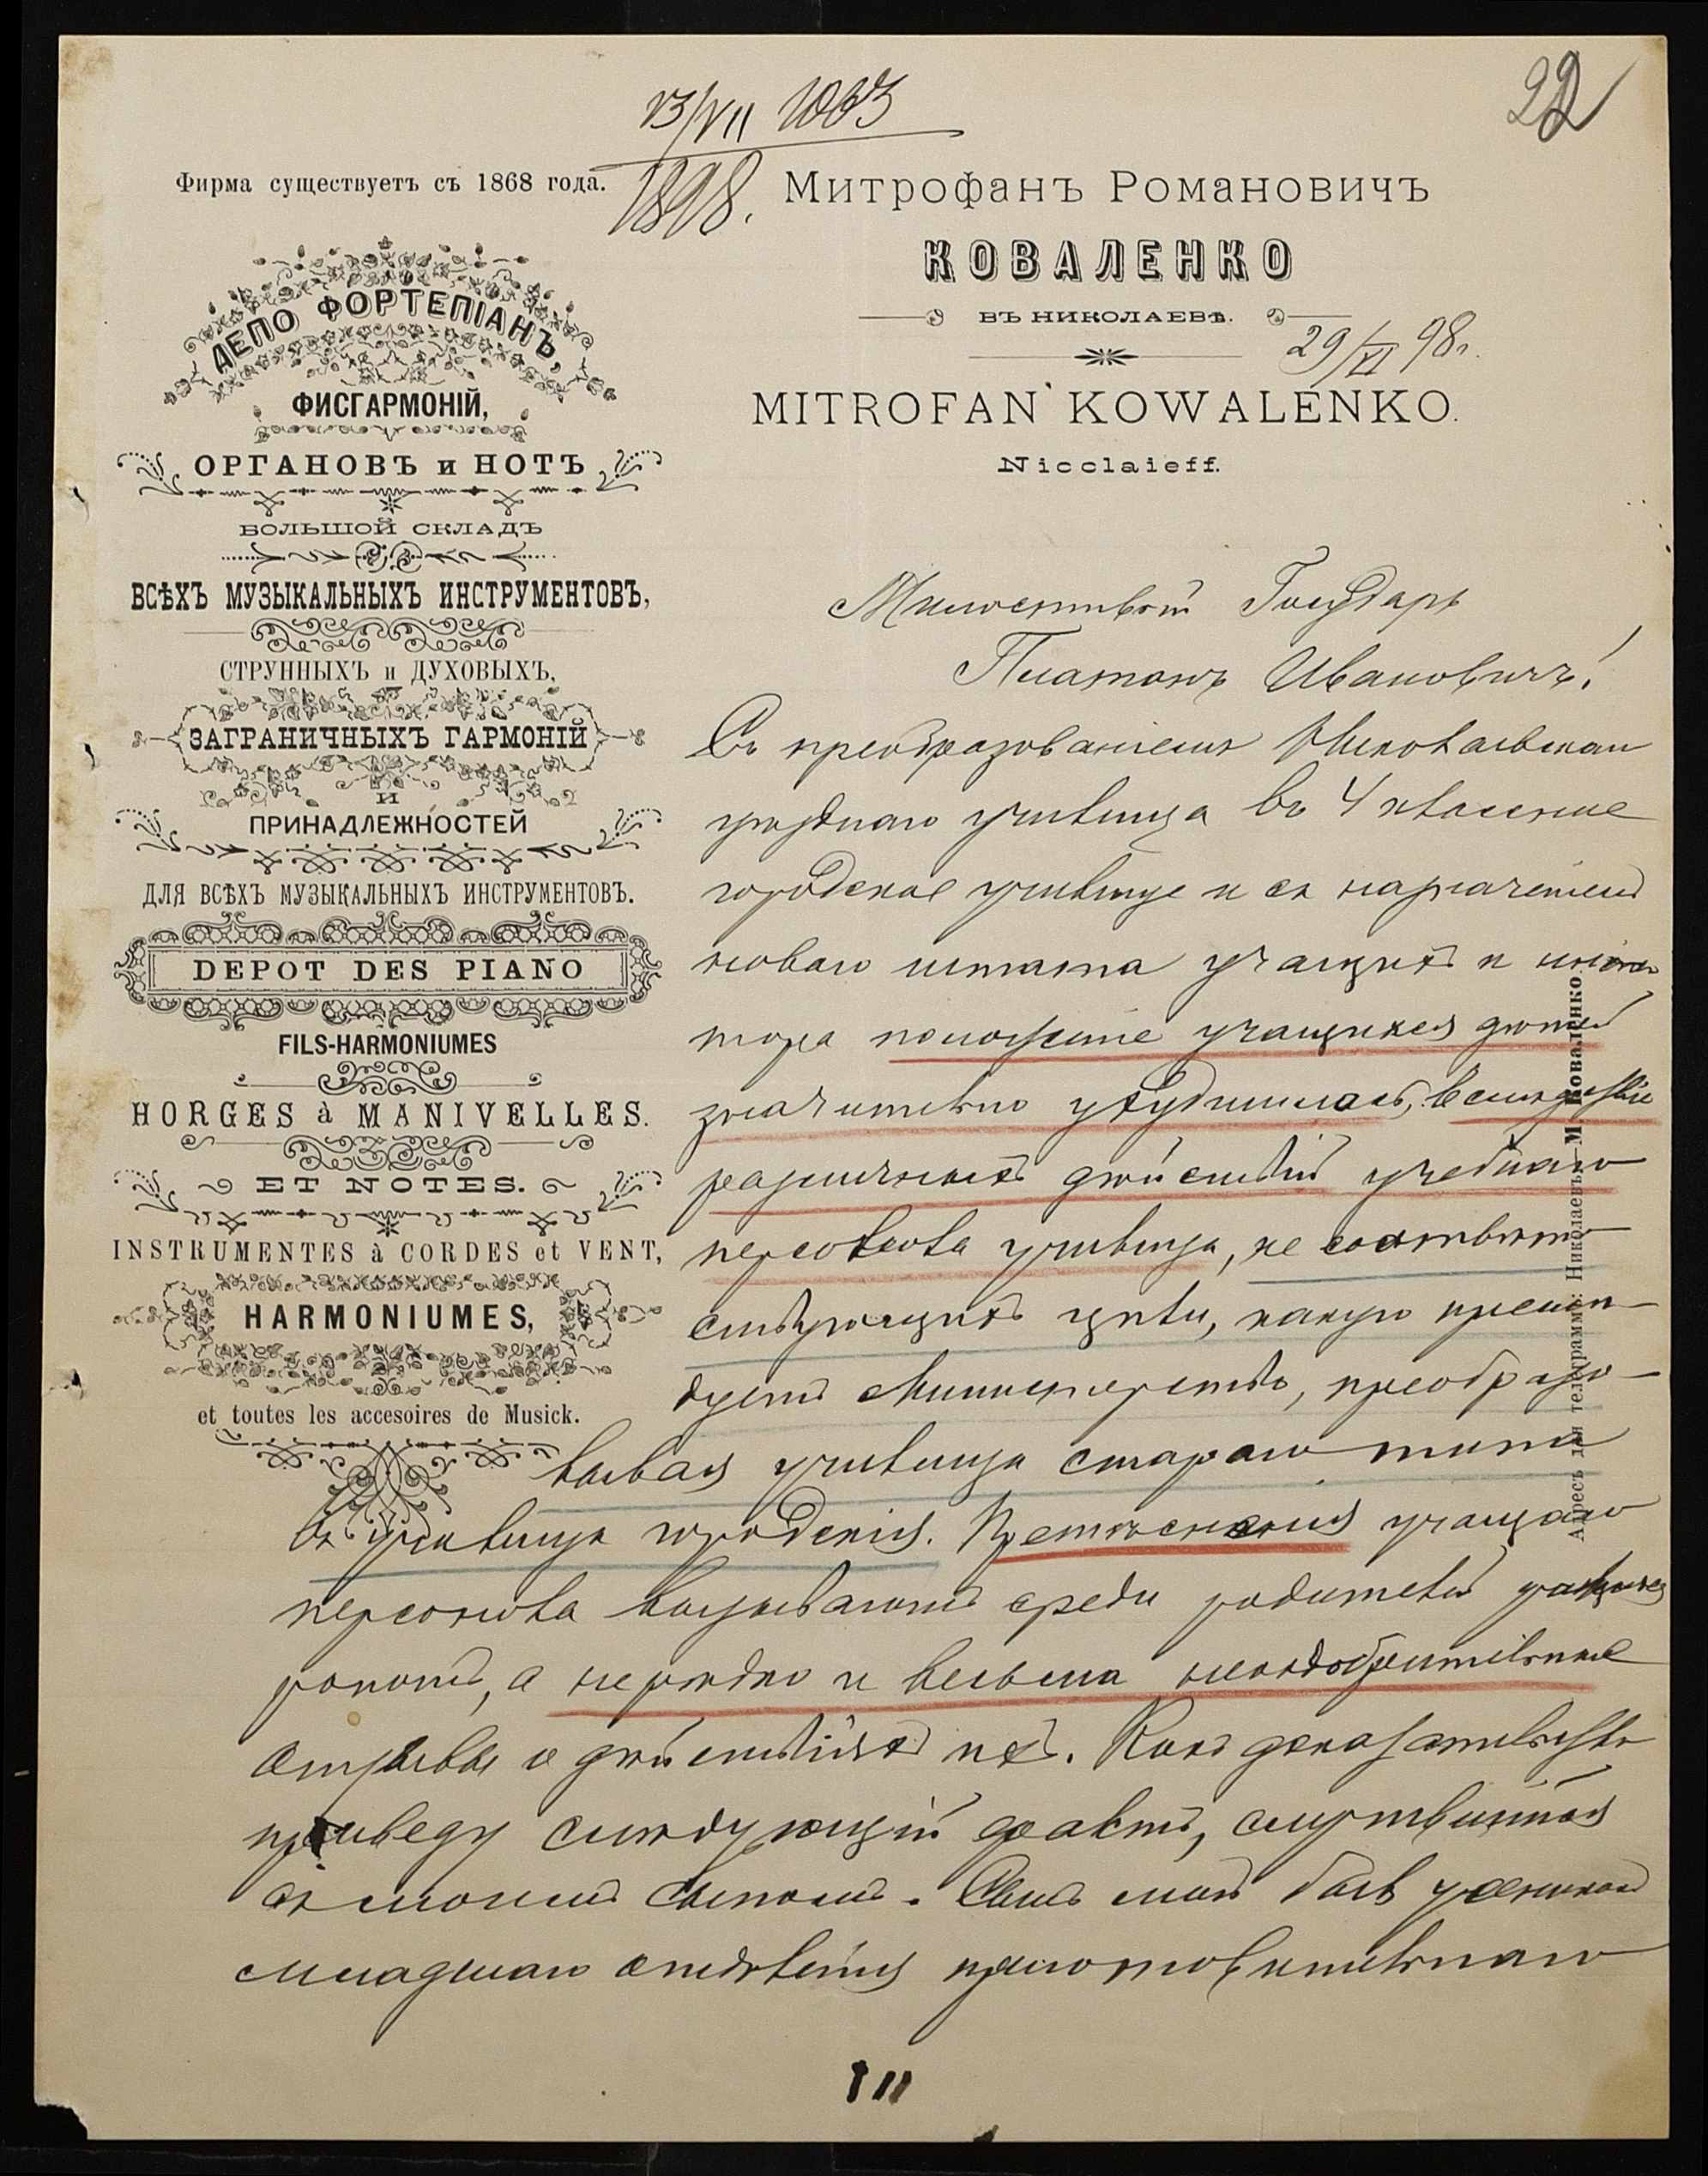 22
13/VII 1063
1898.
Фирма существуетъ съ 1868 года.
ДЕПО ФОРТЕПІАНЪ,
ФИСГАРМОНІЙ,
ОРГАНОВЪ и НОТЪ
БОЛЬШОЙ СКЛАДЪ
ВСѢХЪ МУЗЫКАЛЬНЫХЪ ИНСТРУМЕНТОВЪ,
СТРУННЫХЪ и ДУХОВЫХЪ,
ЗАГРАНИЧНЫХЪ ГАРМОНІЙ
И
ПРИНАДЛЕЖНОСТЕЙ
ДЛЯ ВСѢХЪ МУЗЫКАЛЬНЫХЪ ИНСТРУМЕНТОВЪ.
DEPOT DES PIANO
FILS-HARMONIUMES
HORGES à MANIVELLES.
ET NOTES.
INSTRUMENTES à CORDES et VENT,
HARMONIUMES,
et toutes les accesoires de Musick.
Митрофанъ Романовичъ
КОВАЛЕНКО
ВЪ НИКОЛАЕВѢ.
29/VI 98г.
MITROFAN KOWALENKO.
Nicclaieff.
Адресъ для телеграммъ: Николаевъ М. Коваленко.
Милостивый Государь
Платонъ Ивановичъ!
Съ преобразованіемъ Николаевскаго
уѣзднаго училища въ 4 классное
городское училище и съ назначеніемъ
новаго штата учащихъ и инспек-
тора положеніе учащихся дѣтей
значительно ухудшилось, вслѣдствіе
различныхъ дѣйствій учебнаго
персонала училища, не соотвѣт-
ствующихъ цѣли, какую преслѣ-
дуетъ Министерство, преобразо-
вывая училища стараго типа
въ училища городскія. Притѣсненія учащаго
персонала вызываютъ среди родителей учащихся
ропотъ, а нерѣдко и весьма неодобрительные
отзывы о дѣйствіяхъ ихъ. Какъ доказательство
приведу слѣдующій фактъ, случившійся
съ моимъ сыномъ. Сынъ мой былъ ученикомъ
младшаго отдѣленія приготовительнаго